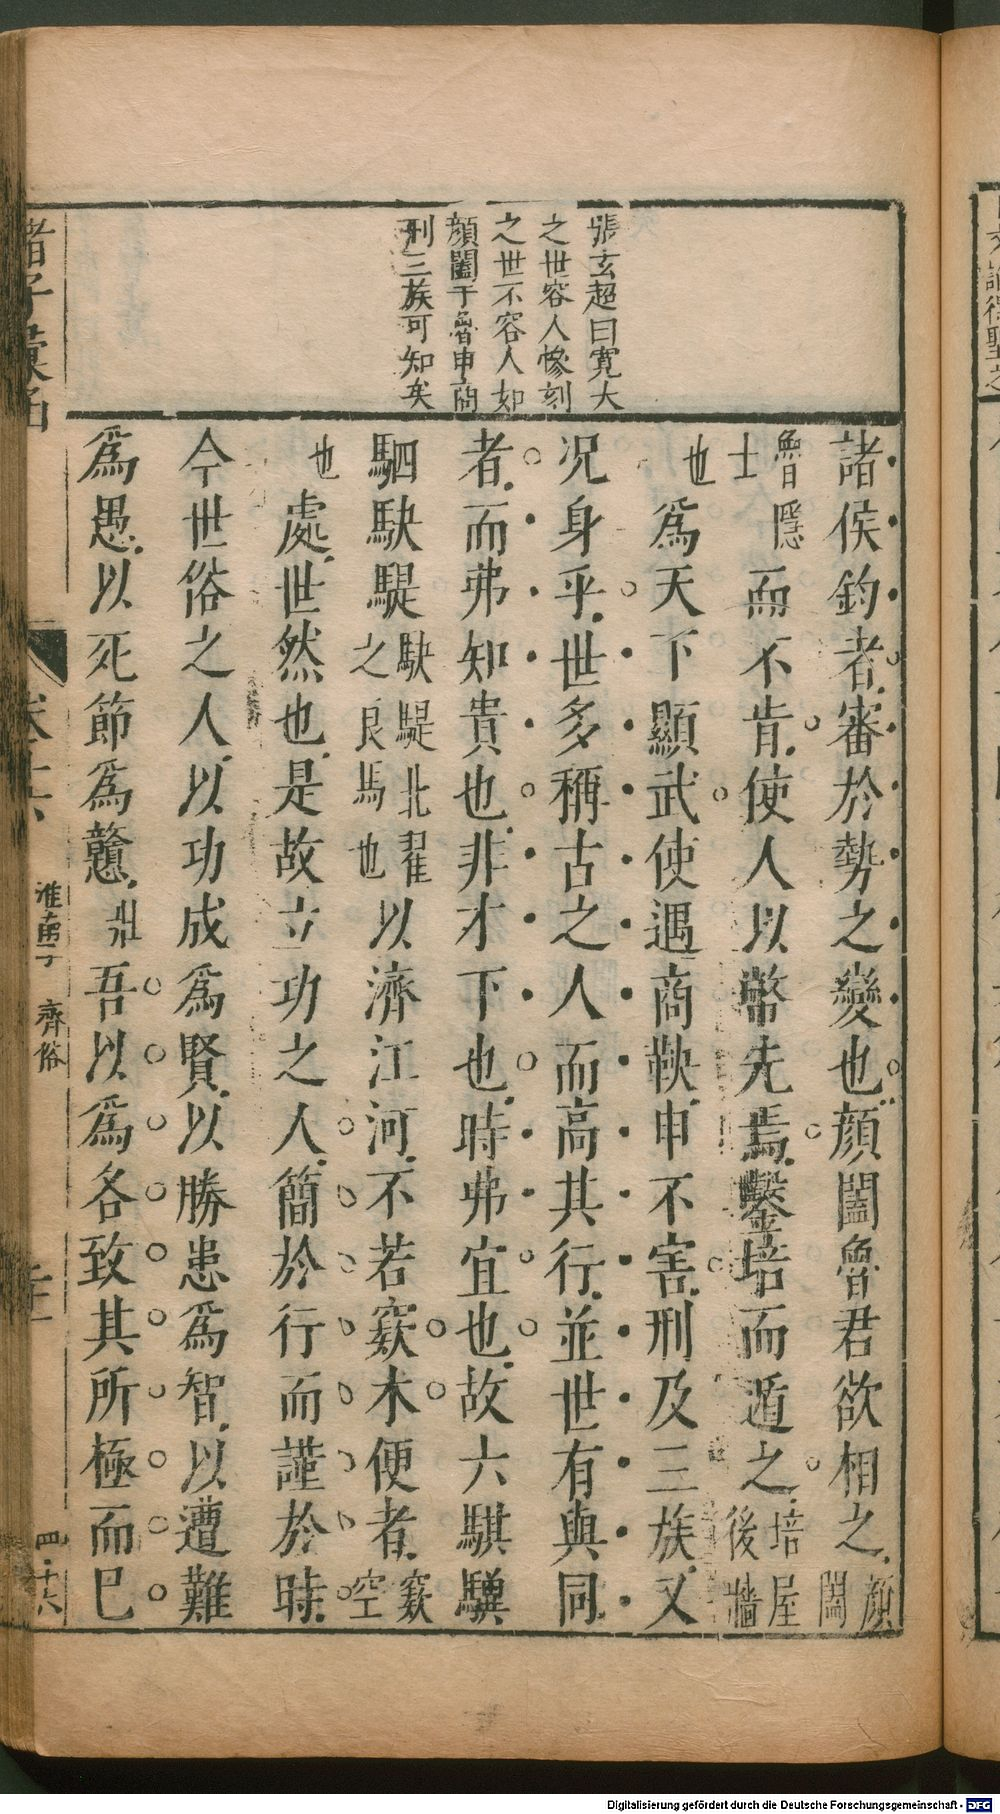 張玄超曰寬大
之世容人慘刻
之世不容人如
顔闔于魯申商
刑三族可知矣
諸侯鈞者審於勢之變也顔闔魯君欲相之顔闔
魯隱士而不肯使人以幣先焉鑿培而遁之培屋後牆
也為天下顯武使遇商鞅申不害刑及三族又
况身乎世多稱古之人而高其行並世有與同
者而弗知貴也非才下也時弗宜也故六騏驥
駟駃騠駃騠北翟之良馬也以濟江河不若窾木便者窾空
也處世然也是故立功之人簡於行而謹於時
今世俗之人以功成為賢以勝患為智以遭難
為愚以死節為戇吾以為各致其所極而巳
諸子彙函
淮南子 齊俗
四十六
Digitalisierung gefördert durch die Deutsche Forschungsgemeinschaft - DFG